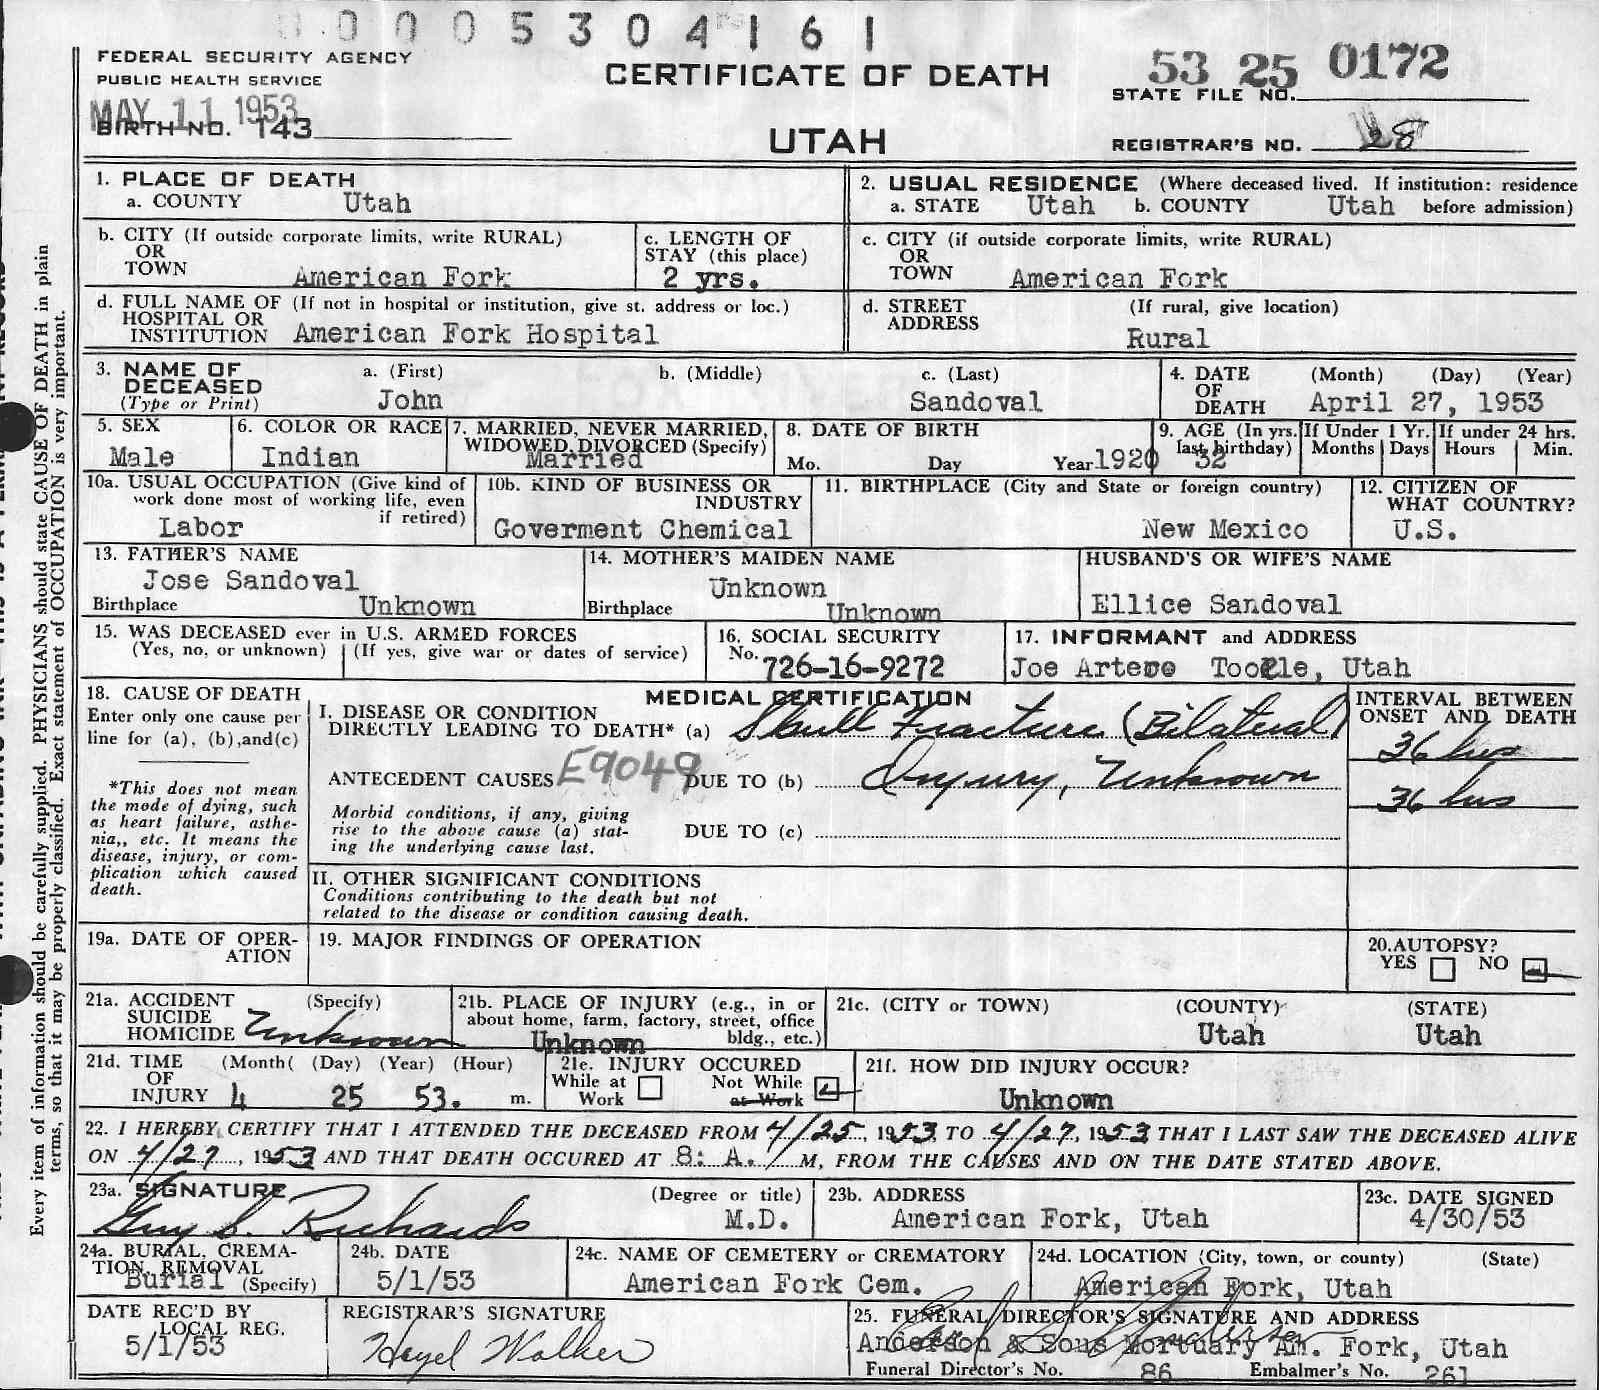 0 0 0 5 3 0 4 1 6 1
FEDERAL SECURITY AGENCY
PUBLIC HEALTH SERVICE
MAY 11 1953
BIRTH NO. 143
CERTIFICATE OF DEATH
UTAH
53 25 0172
STATE FILE NO.
REGISTRAR'S NO. 28
Every item of information should be carefully supplied. PHYSICIANS should state CAUSE OF DEATH in plain
terms, so that it may be properly classified. Exact statement of OCCUPATION is very important.
1. PLACE OF DEATH
a. COUNTY Utah
2. USUAL RESIDENCE (Where deceased lived. If institution: residence
a. STATE Utah b. COUNTY Utah before admission)
b. CITY (If outside corporate limits, write RURAL)
OR
TOWN American Fork
c. LENGTH OF
STAY (this place)
2 yrs.
c. CITY (if outside corporate limits, write RURAL)
OR
TOWN American Fork
d. FULL NAME OF (If not in hospital or institution, give st. address or loc.)
HOSPITAL OR
INSTITUTION American Fork Hospital
d. STREET (If rural, give location)
ADDRESS
Rural
3. NAME OF a. (First) b. (Middle) c. (Last)
DECEASED
(Type or Print) John Sandoval
4. DATE (Month) (Day) (Year)
OF
DEATH April 27, 1953
5. SEX
Male
6. COLOR OR RACE
Indian
7. MARRIED, NEVER MARRIED,
WIDOWED, DIVORCED (Specify)
Married
8. DATE OF BIRTH
Mo. Day Year 1920
9. AGE (In yrs.
last birthday) 32
If Under 1 Yr.
Months Days
If under 24 hrs.
Hours Min.
10a. USUAL OCCUPATION (Give kind of
work done most of working life, even
if retired)
Labor
10b. KIND OF BUSINESS OR
INDUSTRY
Goverment Chemical
11. BIRTHPLACE (City and State or foreign country)
New Mexico
12. CITIZEN OF
WHAT COUNTRY?
U.S.
13. FATHER'S NAME
Jose Sandoval
Birthplace Unknown
14. MOTHER'S MAIDEN NAME
Unknown
Birthplace Unknown
HUSBAND'S OR WIFE'S NAME
Ellice Sandoval
15. WAS DECEASED ever in U.S. ARMED FORCES
(Yes, no, or unknown) (If yes, give war or dates of service)
16. SOCIAL SECURITY
No. 726-16-9272
17. INFORMANT and ADDRESS
Joe Utah
18. CAUSE OF DEATH
Enter only one cause per
line for (a), (b),and(c)
*This does not mean
the mode of dying, such
as heart failure, asthe-
nia,, etc. It means the
disease, injury, or com-
plication which caused
death.
MEDICAL CERTIFICATION
I. DISEASE OR CONDITION
DIRECTLY LEADING TO DEATH* (a) Skull Fracture (Bilateral)
ANTECEDENT CAUSES E9049 DUE TO (b) Injury, Unknown
Morbid conditions, if any, giving
rise to the above cause (a) stat-
ing the underlying cause last.
DUE TO (c)
INTERVAL BETWEEN
ONSET AND DEATH
36 hrs
36 hrs
II. OTHER SIGNIFICANT CONDITIONS
Conditions contributing to the death but not
related to the disease or condition causing death.
19a. DATE OF OPER-
ATION
19. MAJOR FINDINGS OF OPERATION
20.AUTOPSY?
YES NO
21a. ACCIDENT (Specify)
SUICIDE
HOMICIDE Unknown
21b. PLACE OF INJURY (e.g., in or
about home, farm, factory, street, office
bldg., etc.)
Unknown
21c. (CITY or TOWN) (COUNTY) (STATE)
Utah Utah
21d. TIME (Month( (Day) (Year) (Hour)
OF
INJURY 4 25 53. m.
21e. INJURY OCCURED
While at Work
Not While at Work
21f. HOW DID INJURY OCCUR?
Unknown
22. I HEREBY CERTIFY THAT I ATTENDED THE DECEASED FROM 4/25, 1953 TO 4/27, 1953 THAT I LAST SAW THE DECEASED ALIVE
ON 4/27, 1953 AND THAT DEATH OCCURED AT 8: A. M, FROM THE CAUSES AND ON THE DATE STATED ABOVE.
23a. SIGNATURE (Degree or title)
Guy S. Richards M.D.
23b. ADDRESS
American Fork, Utah
23c. DATE SIGNED
4/30/53
24a. BURIAL, CREMA-
TION, REMOVAL
Burial (Specify)
24b. DATE
5/1/53
24c. NAME OF CEMETERY or CREMATORY
American Fork Cem.
24d. LOCATION (City, town, or county) (State)
American Fork, Utah
DATE REC'D BY
LOCAL REG.
5/1/53
REGISTRAR'S SIGNATURE
Hazel Walker
25. FUNERAL DIRECTOR'S SIGNATURE AND ADDRESS
Anderson & Sons Mortuary Am. Fork, Utah
Funeral Director's No. 86 Embalmer's No. 261